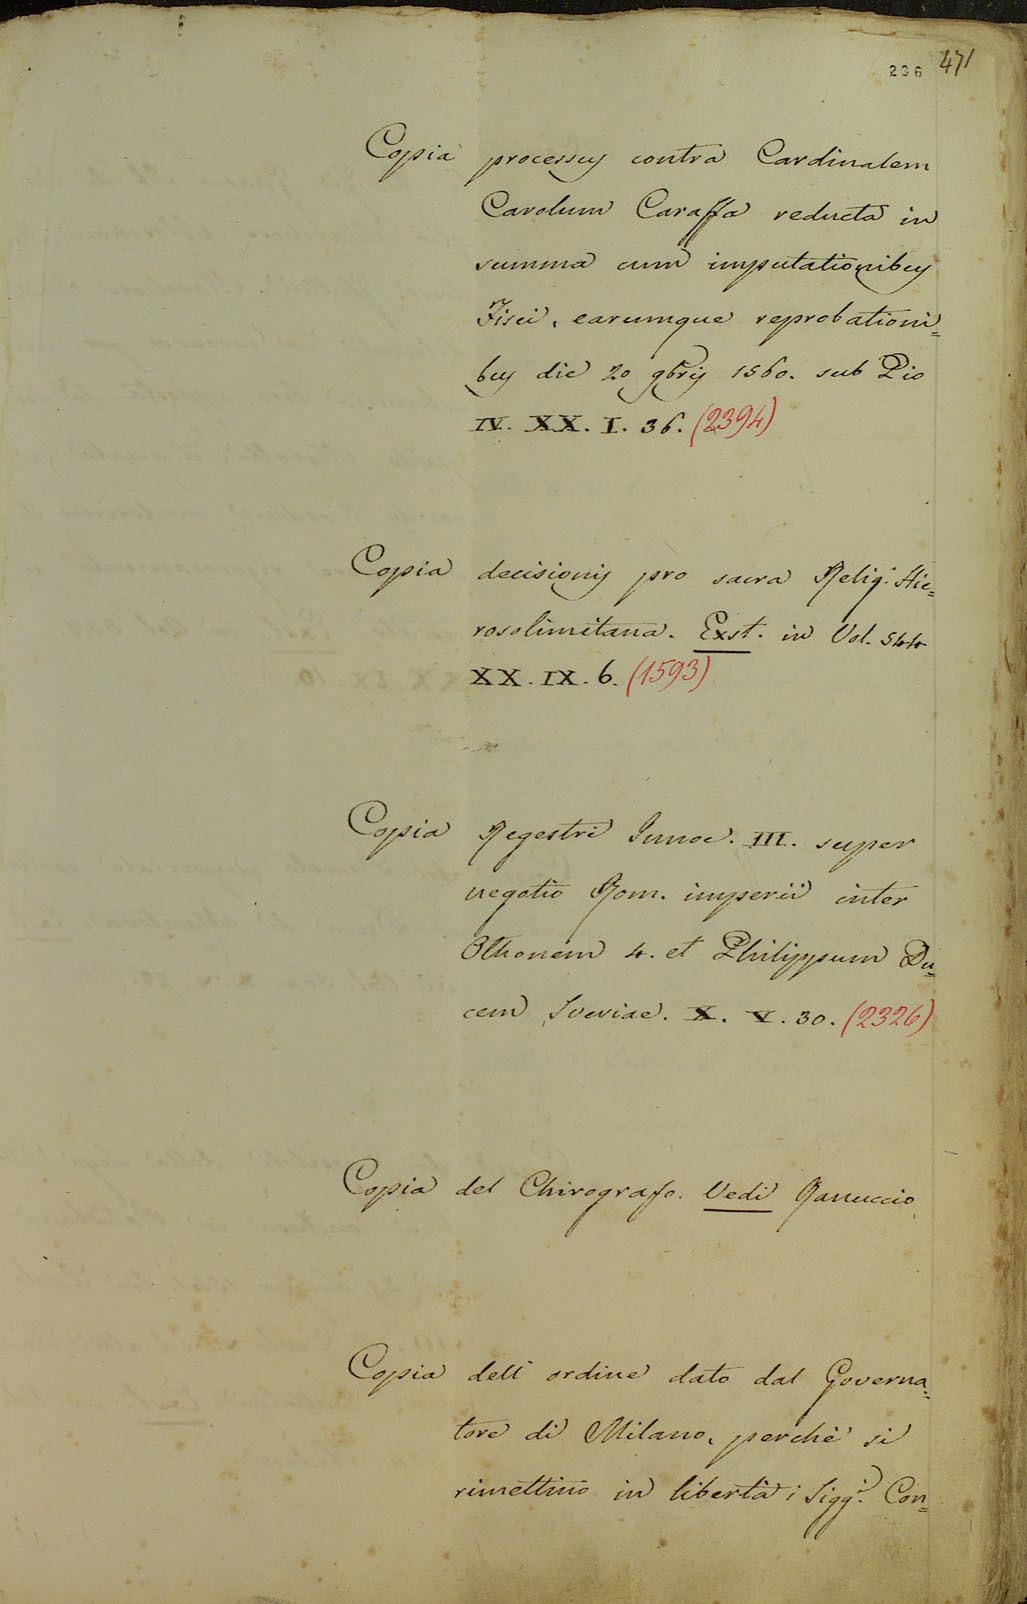 236 471
Copia processus contra Cardinalem
Carolum Caraffa reducta in
summa cum imputationibus
Fisci, earumque reprobationi=
bus die 20 9bris 1560. sub Pio
IV. XX. I. 36. (2394)
Copia decisionis pro sacra Relig. Hie=
rosolimitana. Exst. in Vol. 544
XX. IX. 6. (1593)
Copia Regestri Innoc. III. super
negotio Rom. imperii inter
Othonem 4. et Philippum Du=
cem Sveviae. X. V. 30. (2326)
Copia del Chirografo. Vedi Ranuccio
Copia dell' ordine dato dal Governa=
tore di Milano, perchè si
rimettino in libertà i Sigg.i Con=